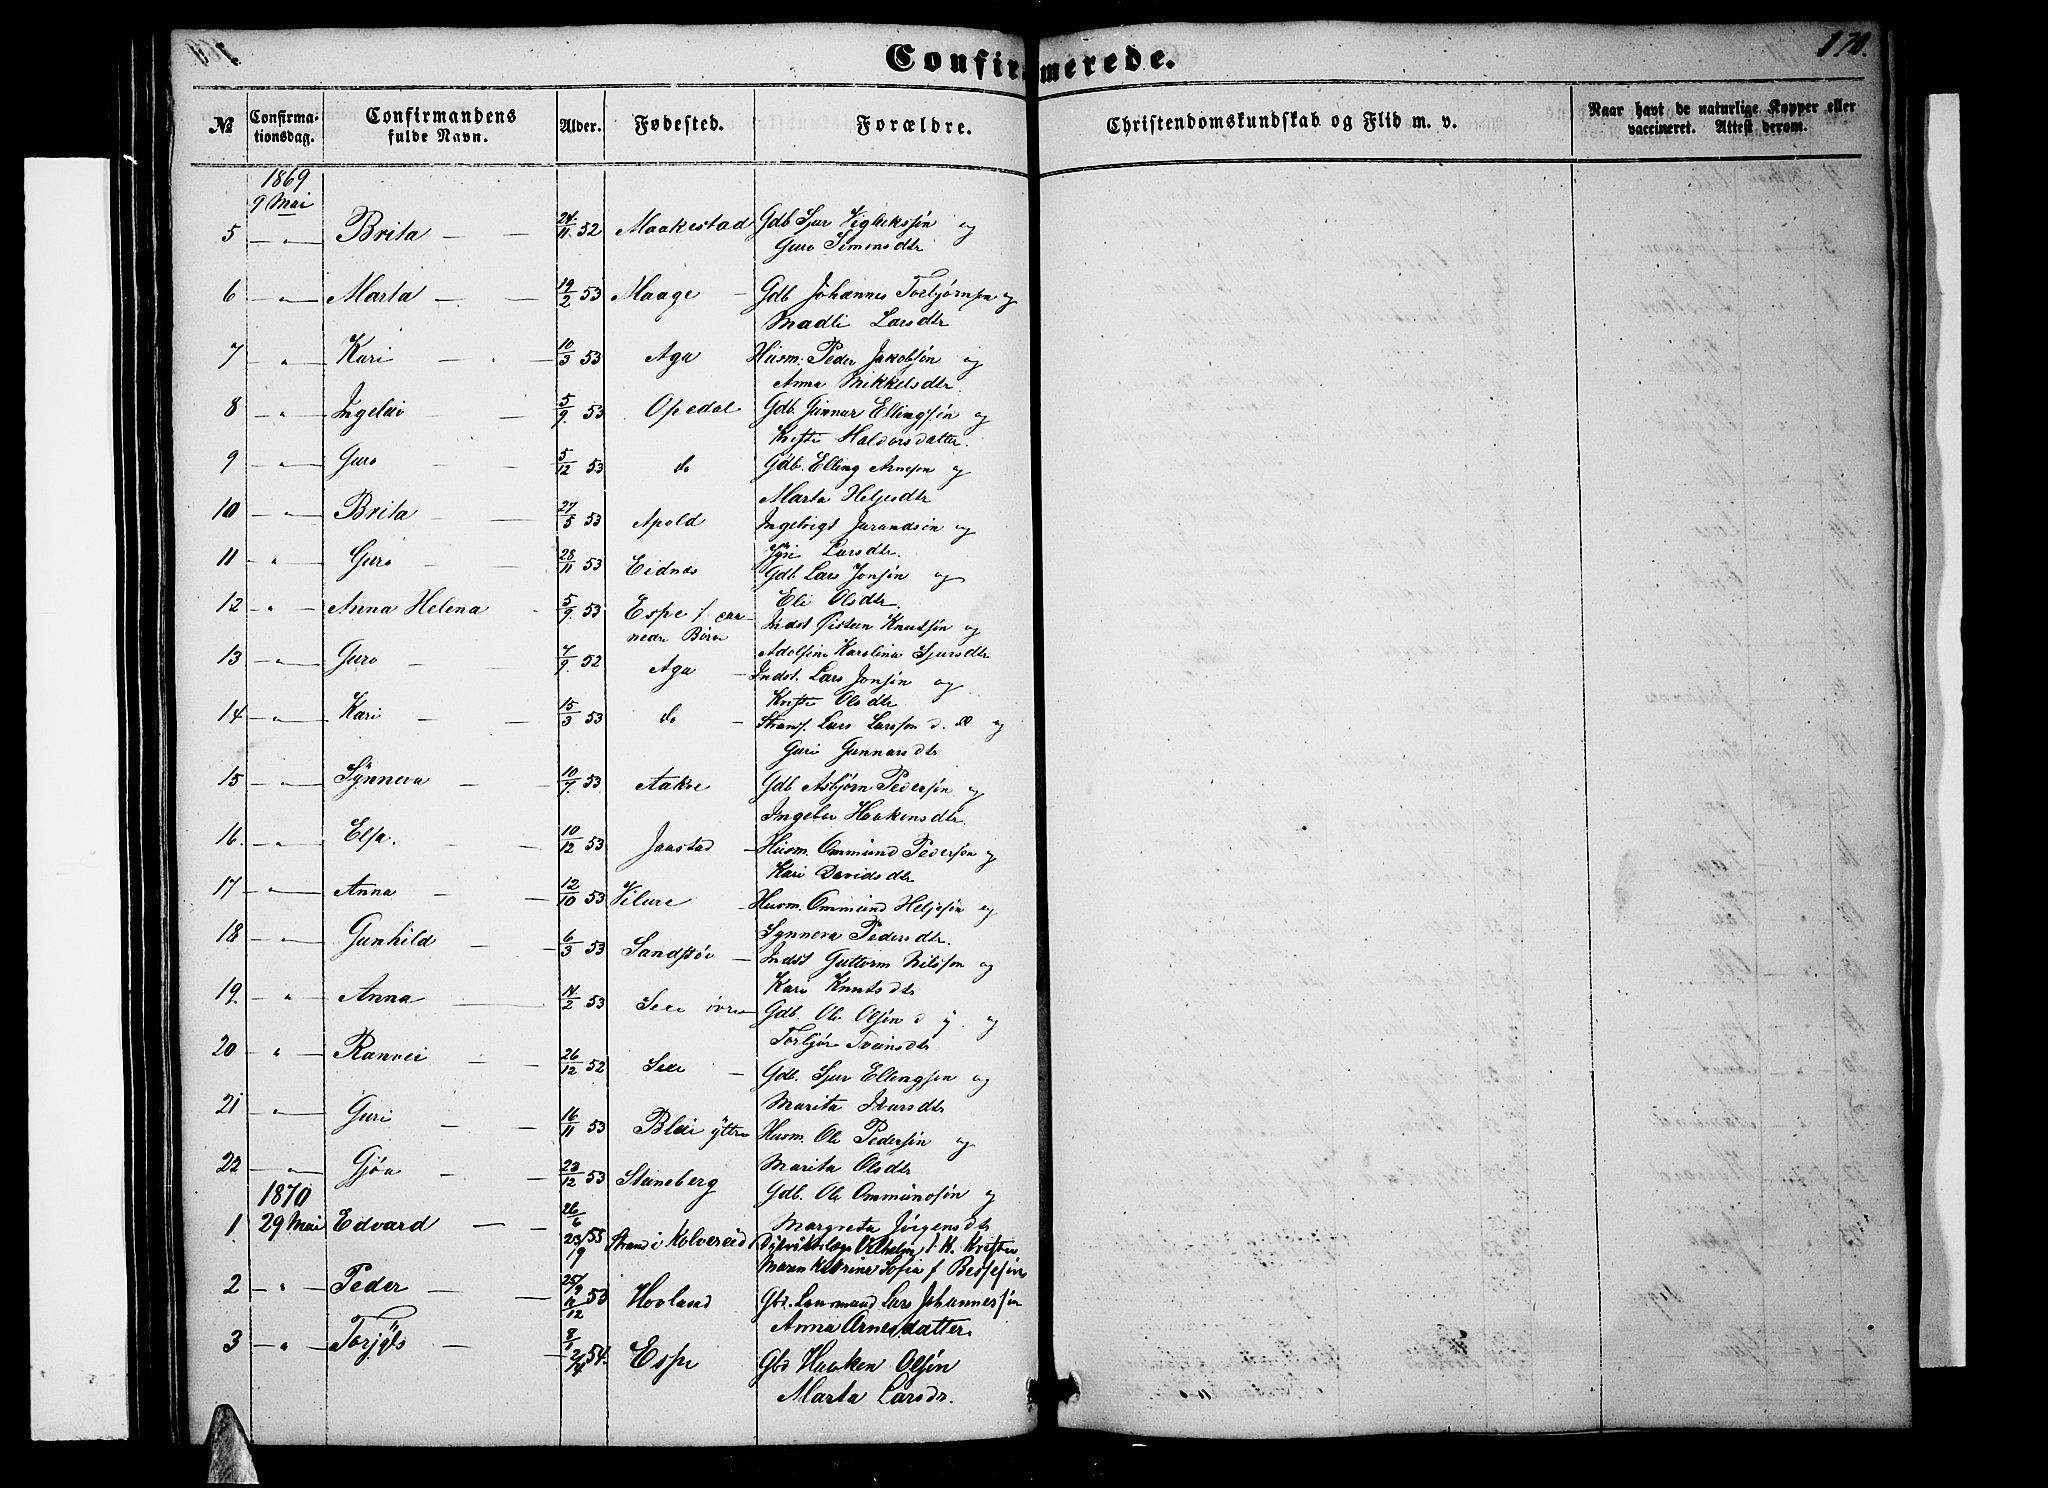 170.
Confirmerede.
№ Confirmationsdag. Confirmandens fulde Navn. Alder. Fødested. Forældre. Christendomskundskab og Flid m. v. Naar havt de naturlige Kopper eller vaccineret. Attest derom.
1869
9 Mai
5 — " — Brita — — 24/11 52 Maakestad Gdb Sjur Vigleiksøn og
Guro Simonsdtr
6 — " — Marta — — 19/2 53 Maage — Gdb Johannes Torbjørnsen og
Madli Larsdtr
7 " — Kari — — 10/3 53 Aga Husm. Peder Jakobsøn og
Anna Mikkelsdtr
8 — " — Ingelei — — 5/9 53 Opedal Gdb. Gunnar Ellingsøn og
Haldorsdatter.
9 — " — Guro — — 5/12 53 do Gdb. Elling Arnesøn og
Marta Heljesdtr
10 — " — Brita — — 27/5 53 Apold Jurandsøn og
Larsdtr.
11 " — Guro — — 28/11 53 Eidnes Gdb Lars Jonsøn og
Eli Olsdtr.
12 — " — Anna Helena 5/9 53 Espe f
Indst Øistein Knutsøn og
13 — " — Guro — — 7/9 52 Aga Adolfine Karolina Sjursdtr
— Indst. Lars Jonsøn og
Olsdtr
14 — " — Kari — — 15/3 53 do — Lars Larssøn d. æ og
Guri Gunnarsdtr
15 — " — Synneva — — 10/7 53 Aakre Gdb Asbjørn Pedersøn og
Ingebor Haakensdtr.
16. — " — Elsa. — — 10/12 53 Jaastad — Husm. Ommund Pedersøn og
Kari Davidsdtr
17 — " — Anna — — 12/10 53 Vilure — Husm. Ommund Heljesøn og
Synneva Pedersdtr.
18 — " — Gunhild — — 6/3 53 Sandstøe — Indst Guttorm Nilssøn og
Kari Knutsdtr
19 — " — Anna — — 14/2 53 Sexe øvre Gdb. Ole Olsøn d y. og
Torbjør Sveinsdtr
20 " — Ranvei — — 26/12 52 Sexe — Gdb. Sjur Ellingsøn og
Marita Ivarsdtr
21 — " — Guri — — 16/11 53 Bleie ÿttre Husm. Ole Pedersøn og
Marita Olsdtr
22 — " — Gjøa — — 23/12 53 Steneberg Gdb. Ole Ommundsøn og
Margreta Jørgensdtr
1870
1 29 Mai Edvard — — 26/6 55 Strand i Kolvereid Distriktslæge Vilhelm
23/19 Maren Katrine Sofia f
2 — " — Peder — — 53 Hovland Gbr. Lensmand Lars Johannessøn
Anna Arnesdatter.
3 — " — — 54. Espe Gbr Haaken Olsøn
Marta Larsdr.